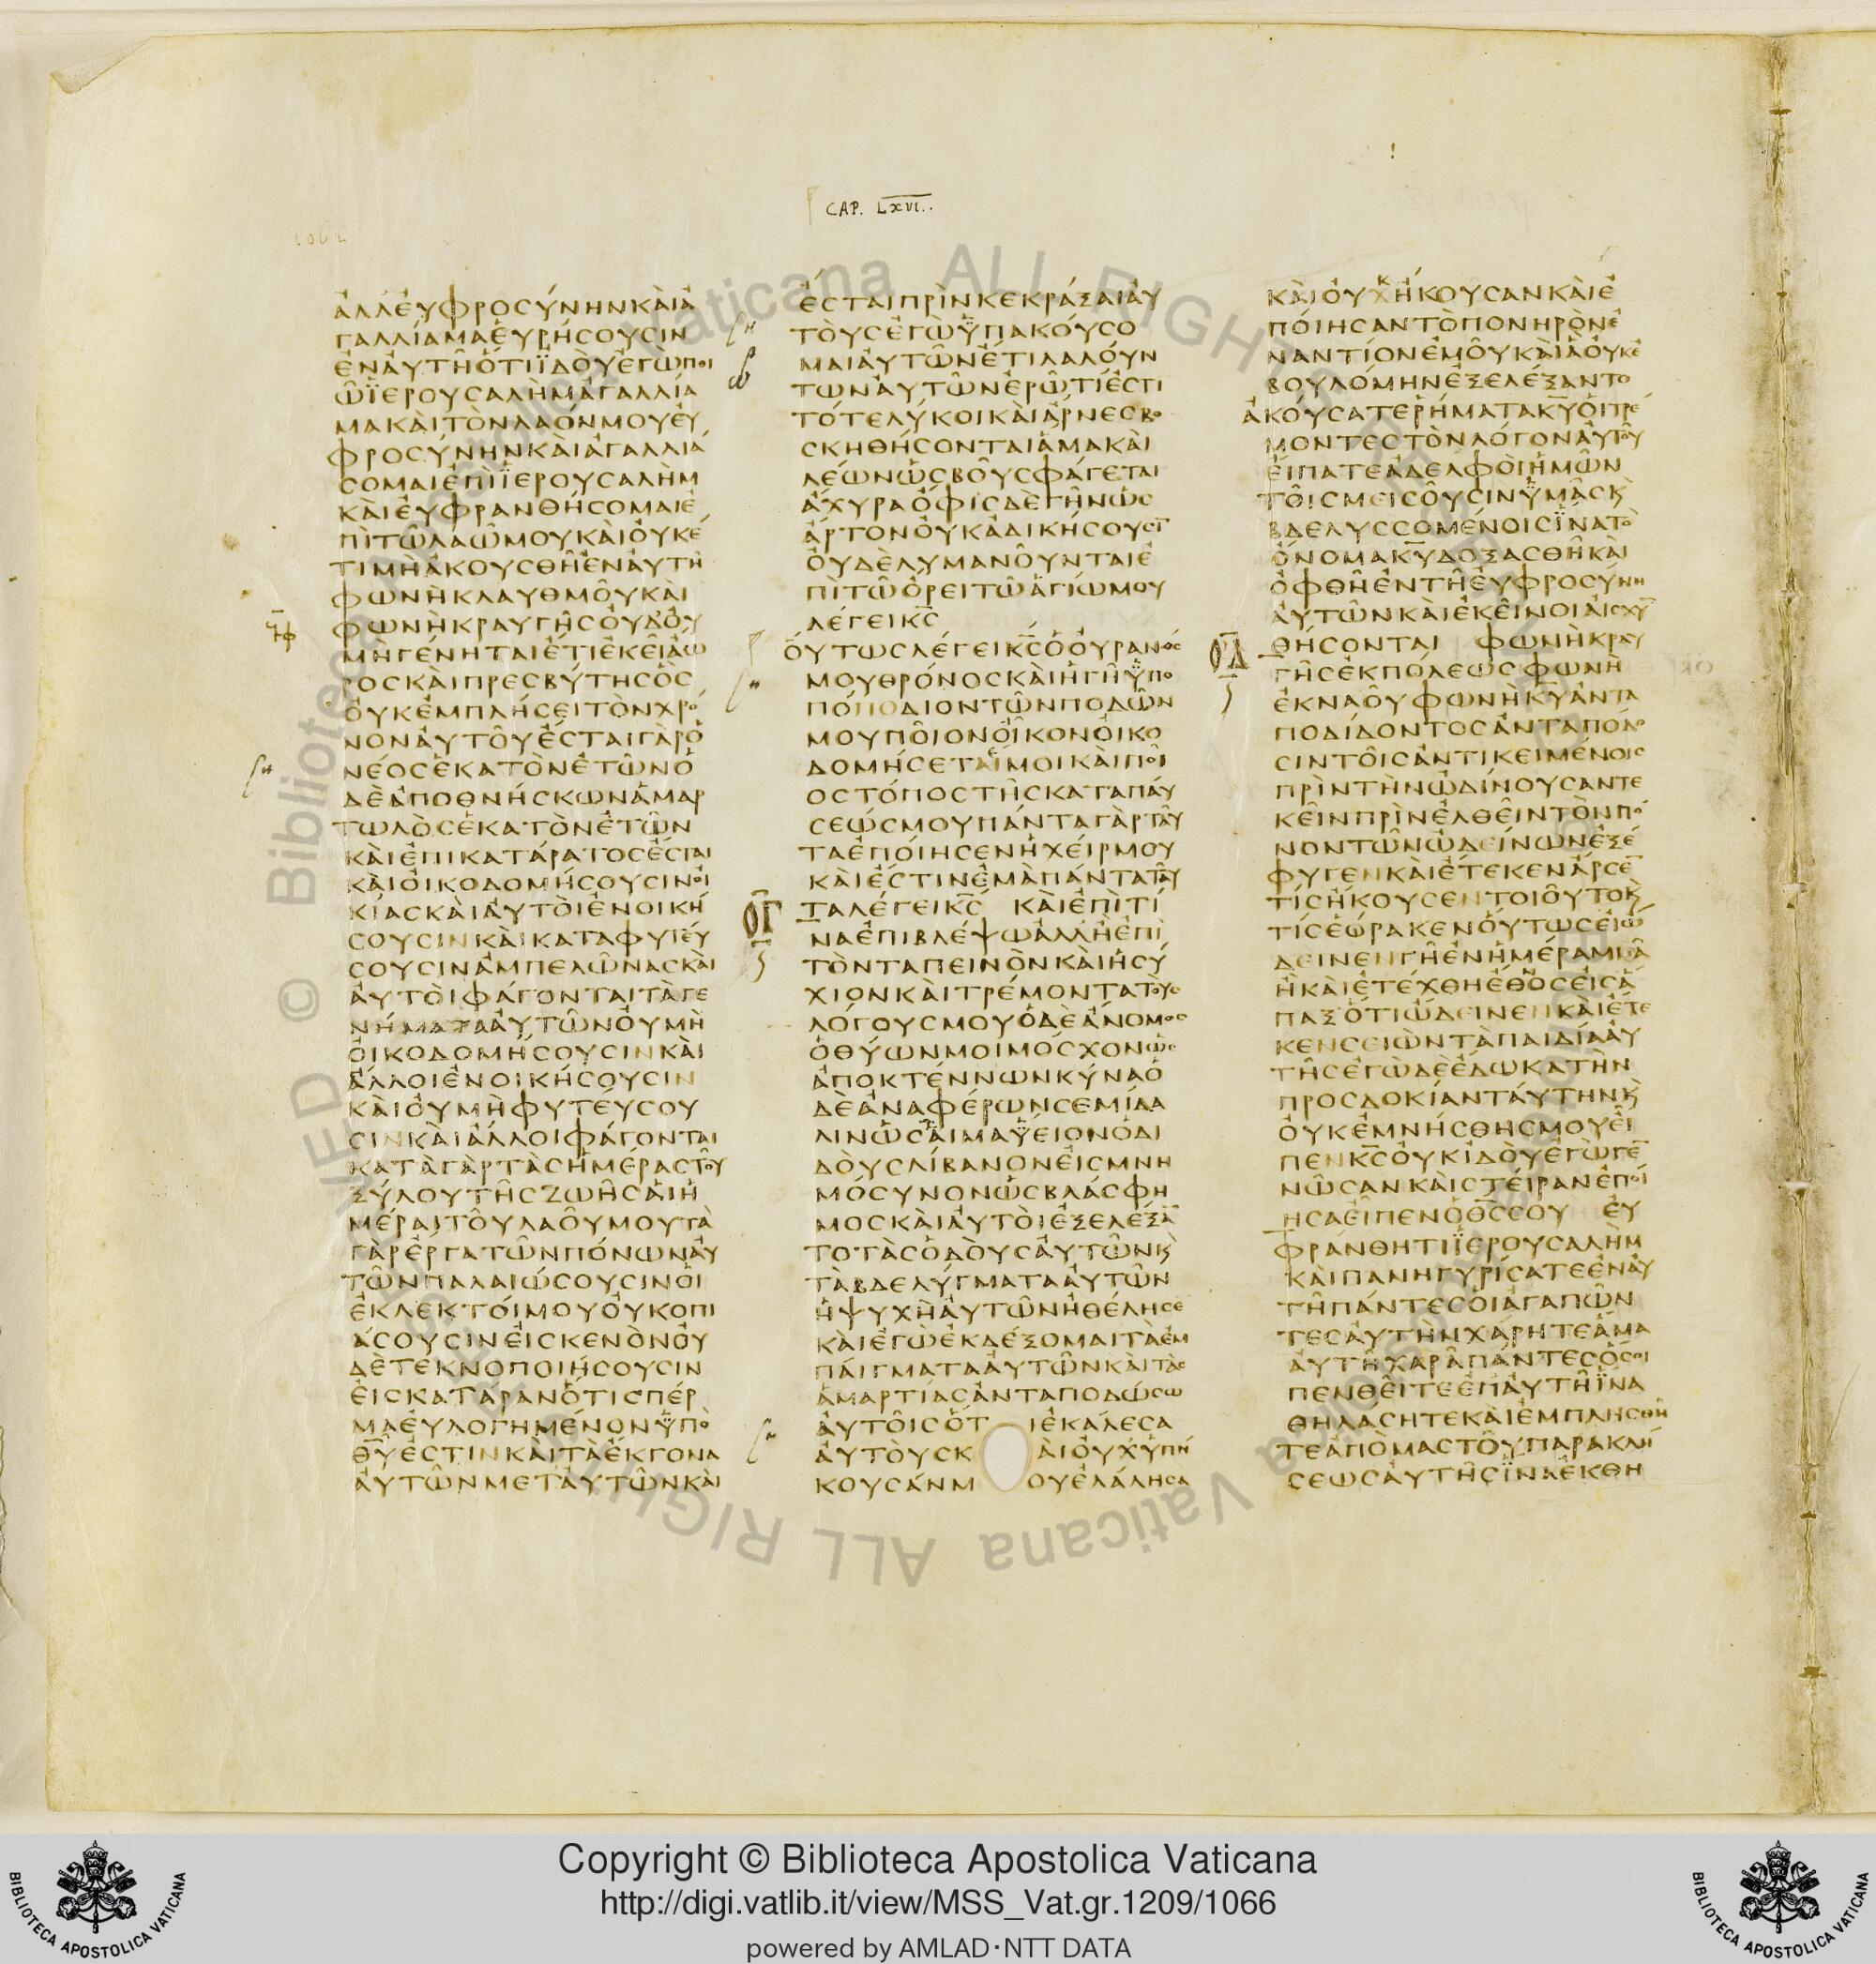 CAP. LXVI..
1062
ἀλλεὐφροσύνηνκαὶἀ
γαλλίαμαεὑρήσουσιν
ἐναὐτῆὅτιϊδοὺἐγὼποι
ῶϊερουσαλὴμἀγαλλία
μακαὶτὸνλαόνμουεὐ
φροσύνηνκαὶἀγαλλιά
σομαιἐπὶϊερουσαλὴμ
καὶεὐφρανθήσομαιἐ
πὶτῶλαῶμουκαὶοὐκέ
τιμὴἀκουσθῆἐναὐτῆ
φωνὴκλαυθμοῦκαὶ
φωνὴκραυγῆςοὐδ᾽οὐ
μὴγένηταιἔτιἐκεῖἄω
ροςκαὶπρεσβύτηςὃς
οὐκἐμπλήσειτὸνχρό
νοναὐτοῦἔσταιγὰρὁ
νέοςἑκατὸνἐτῶνὁ
δὲἀποθνήσκωνἁμαρ
τωλὸςἑκατὸνἐτῶν
καὶἐπικατάρατοςἔσται
καὶοἰκοδομήσουσινοἰ
κίαςκαὶαὐτοὶἐνοική
σουσινκαὶκαταφυτεύ
σουσινἀμπελῶναςκαὶ
αὐτοὶφάγονταιτὰγε
νήματααὐτῶνοὐμὴ
οἰκοδομήσουσινκαὶ
ἄλλοιἐνοικήσουσιν
καὶοὐμὴφυτεύσου
σινκαὶἄλλοιφάγονται
κατὰγὰρτὰςἡμέραςτοῦ
ξύλουτῆςζωῆςαἱἡ
μέραιτοῦλαοῦμουτὰ
γὰρἔργατῶνπόνωναὐ
τῶνπαλαιώσουσινοἱ
ἐκλεκτόιμουοὐκοπι
άσουσινεἰςκενὸνοὐ
δὲτεκνοποιήσουσιν
εἰςκατάρανὅτισπέρ
μαεὐλογημένονϋπὸ
θ̅υ̅ἐστινκαὶτὰἔκγονα
αὐτῶνμεταὐτῶνκαὶ
ἔσταιπρὶνκεκράξαιαὐ
τοὺςἐγὼϋπακούσο
μαιαὐτῶνἔτιλαλούν
τωναὐτῶνἐρῶτίἐστι
τότελύκοικαὶἄρνεςβο
σκηθήσονταιἅμακαὶ
λέωνὡςβοῦςφάγεται
ἄχυραὄφιςδὲγῆνὡς
ἄρτονοὐκἀδικήσουσῑ
οὐδὲλυμανοῦνταιἐ
πὶτῶὄρειτῶἁγίωμου
λέγεικ̅ς̅
οὕτωςλέγεικ̅ς̅ὁοὐρανός
μουθρόνοςκαὶἡγῆϋπο
πόποδιοντῶνποδῶν
μουποῖονοἶκονοἰκο
δομήσεταίμοικαὶποῖ
οςτόποςτῆςκαταπαύ
σεώςμουπάνταγὰρταῦ
ταἐποίησενἡχείρμου
καὶἔστινἐμὰπάνταταῦ
ταλέγεικ̅ς̅ καὶἐπὶτί
ΟΓ
ναἐπιβλέψωἀλλἢἐπὶ
τὸνταπεινὸνκαὶἡσύ
χιονκαὶτρέμοντατοὺς
λόγουςμουὁδὲἄνομος
ὁθύωνμοιμόσχονὡς
ἀποκτέννωνκύναὁ
δὲἀναφέρωνσεμίδα
λινὡςαἷμαϋειονὁδι
δοὺςλίβανονεἰςμνη
μόσυνονὡςβλάσφη
μοςκαὶαὐτοὶἐξελέξᾱ
τοτὰςὁδοὺςαὐτῶνκ̀
τὰβδελύγματααὐτῶν
ἡψυχὴαὐτῶνἠθέλησε
καὶἐγὼἐκδέξομαιτὰἐμ
πάιγματααὐτῶνκαὶτὰς
ἁμαρτίαςἀνταποδώσω
αὐτοῖςὅτ ιἐκάλεσα
αὐτοὺςκ αὶοὐχὑπή
κουσάνμ ουἐλάλησα
καὶοὐχἤκουσανκαὶἐ
ποίησαντὸπονηρὸνἐ
ναντίονἐμοῦκαὶἃοὐκἐ
βουλόμηνἐξελέξαντο
ἀκούσατερήματακ̅υ̅οἱτρέ
μοντεςτὸνλόγοναὐτοῦ
εἴπατεἀδελφοὶἡμῶν
τοῖςμεισοῦσινϋμᾶςκ̀
βδελυσσομένοιςϊνατὸ
ὄνομακ̅υ̅δοξασθῆκαὶ
ὀφθῆἐντῆεὐφροσύνη
αὐτῶνκαὶἐκεῖνοιαἰσχῡ
θήσονται φωνὴκραυ
ΟΔ
γῆςἐκπόλεωςφωνὴ
ἐκναοῦφωνὴκ̅υ̅ἀντα
ποδίδοντοςἀνταπόδο
σιντοῖςἀντικειμένοις
πρὶντὴνὠδίνουσαντε
κεῖνπρὶνἐλθεῖντὸνπό
νοντῶνὠδείνωνἐξέ
φυγενκαὶἔτεκενἄρσε̄
τίςἤκουσεντοιοῦτοκ̀
τίςἑώρακενοὕτωςεἰὤ
δεινενγῆἐνἡμέραμιᾶ
ἢκαὶἐτέχθηἔθνοςεἰςἅ
παξὅτιὤδεινενκαὶἔτε
κενσειὼντὰπαιδίααὐ
τῆςἐγὼδὲἔδωκατὴν
προσδοκίανταύτηνκ̀
οὐκἐμνήσθηςμουεἶ
πενκ̅ς̅οὐκἰδοὺἐγὼγε̄
νῶσανκαὶστεῖρανἐποί
ησαεἶπενὁθ̅ς̅σου εὐ
φράνθητιϊερουσαλὴμ
καὶπανηγυρίσατεἐναὐ
τῆπάντεςοἱἀγαπῶν
τεςαὐτὴνχάρητεἅμα
αὐτῆχαρᾶπάντεςὅσοι
πενθεῖτεἐπαὐτῆϊνα
θηλάσητεκαὶἐμπλησθῆ
τεἀπὸμαστοῦπαρακλή
σεωςαὐτῆςϊναἐκθη
Copyright © Biblioteca Apostolica Vaticana
http://digi.vatlib.it/view/MSS_Vat.gr.1209/1066
powered by AMLAD·NTT DATA
BIBLIOTECA APOSTOLICA VATICANA
BIBLIOTECA APOSTOLICA VATICANA